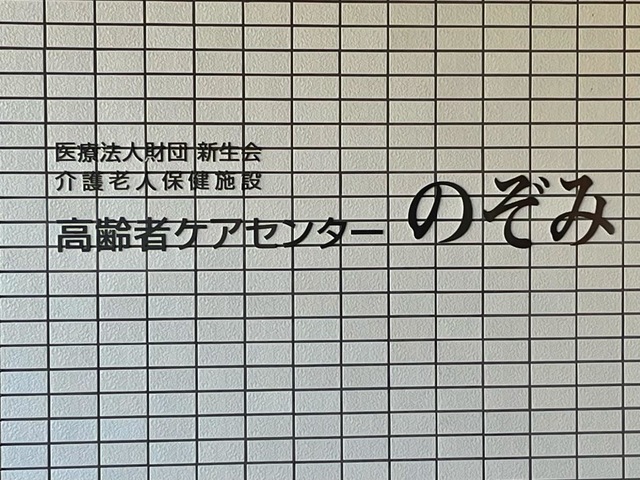 医療法人財団 新生会
介護老人保健施設
高齢者ケアセンター のぞみ